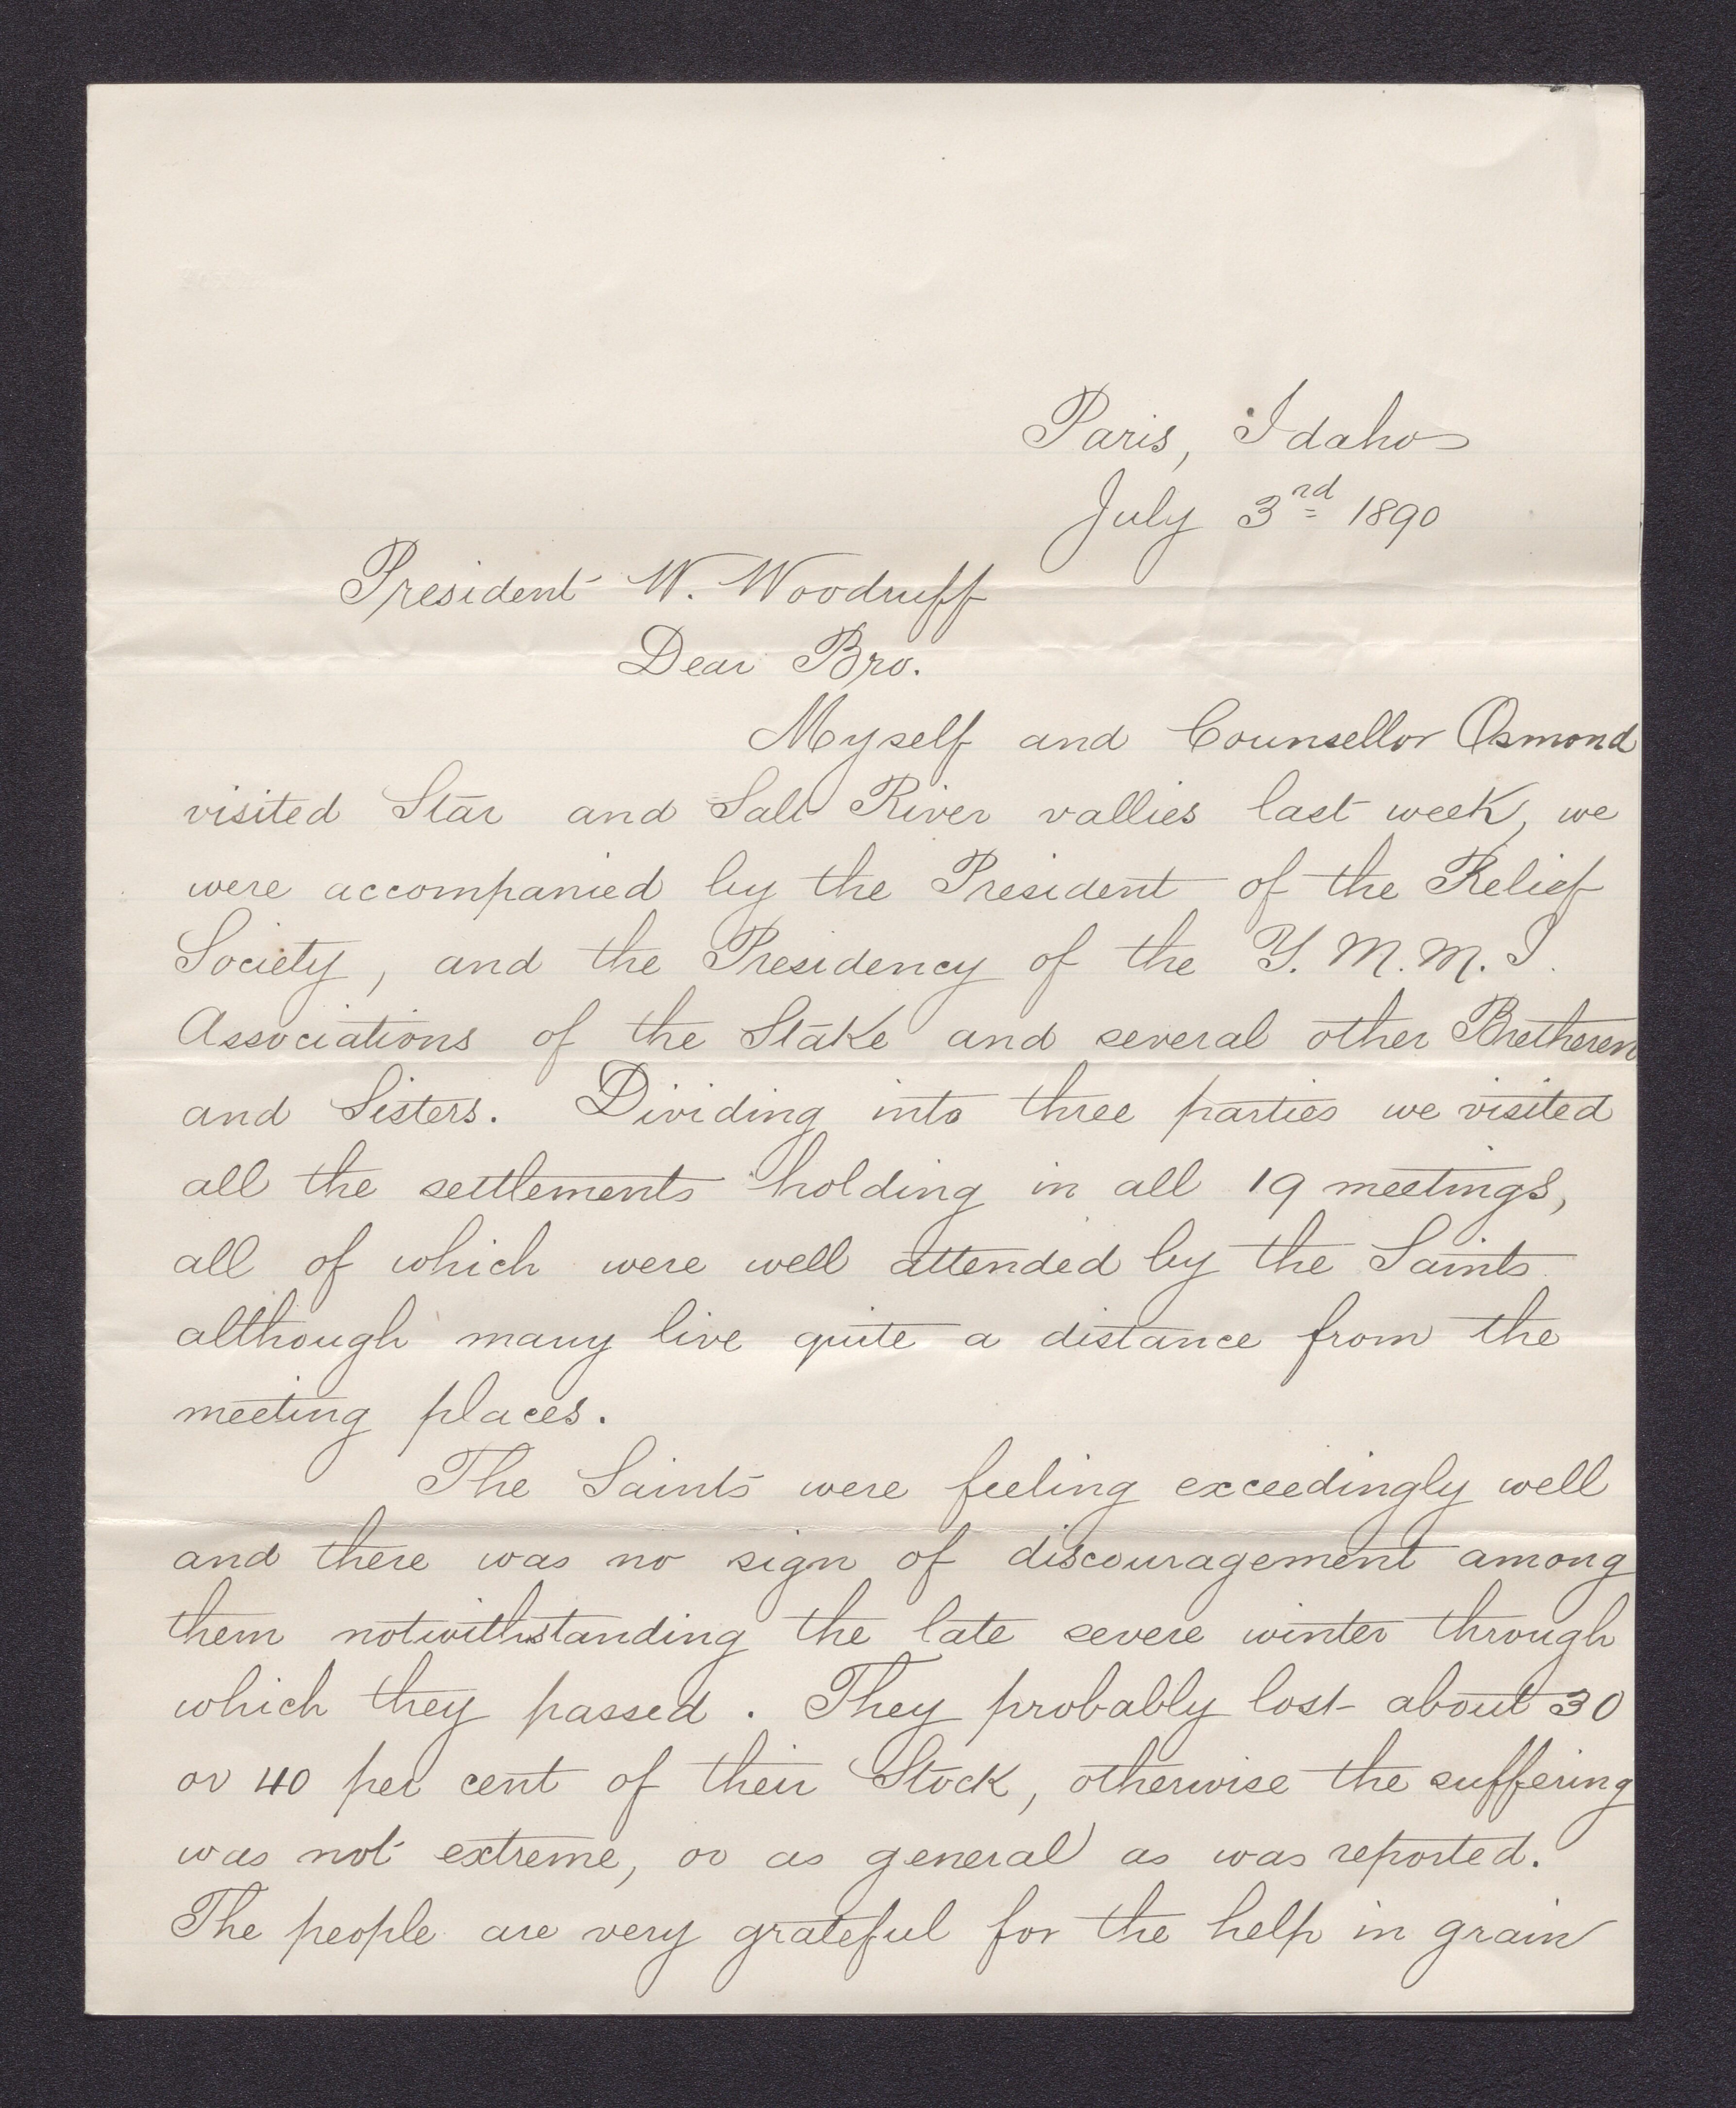 Paris, Idaho
July 3rd 1890
President W. Woodruff
Dear Bro.
Myself and Counsellor Osmond
visited Star and Salt River vallies last week, we
were accompanied by the President of the Relief
Society, and the Presidency of the Y. M. M. I.
Associations of the Stake and several other Bretheren
and Sisters. Dividing into three parties we visited
all the settlements holding in all 19 meetings,
all of which were well attended by the Saints
although many live quite a distance from the
meeting places.
The Saints were feeling exceedingly well
and there was no sign of discouragement among
them notwithstanding the late severe winter through
which they passed. They probably lost about 30
or 40 per cent of their Stock, otherwise the suffering
was not extreme, or as general as was reported.
The people are very grateful for the help in grain